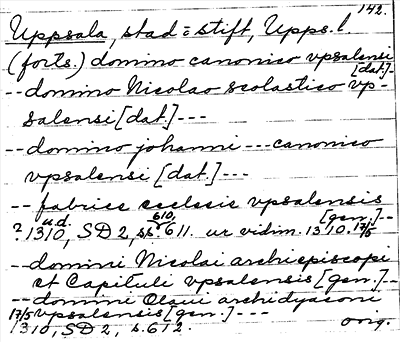 142.
Uppsala, stad = stift, Upps. l.
(forts.) domino canonico vpsalensi
[dat.]-
-- domino Nicolao scolastico vp-
salensi [dat.] ---
-- domino johanni --- canonico
vpsalensi [dat.] ---
-- fabrice ecclesie vpsalensis
[gen.] --
? u.d. 1310, SD 2, s. 610, 611. ur vidim. 1310 17/5
-- domini Nicolai archiepiscopi
et Capituli vpsalensis [gen.] --
-- domini Olaui archidyaconi
17/5 vpsalensis [gen.] ---
1310, SD 2, s. 612. orig.